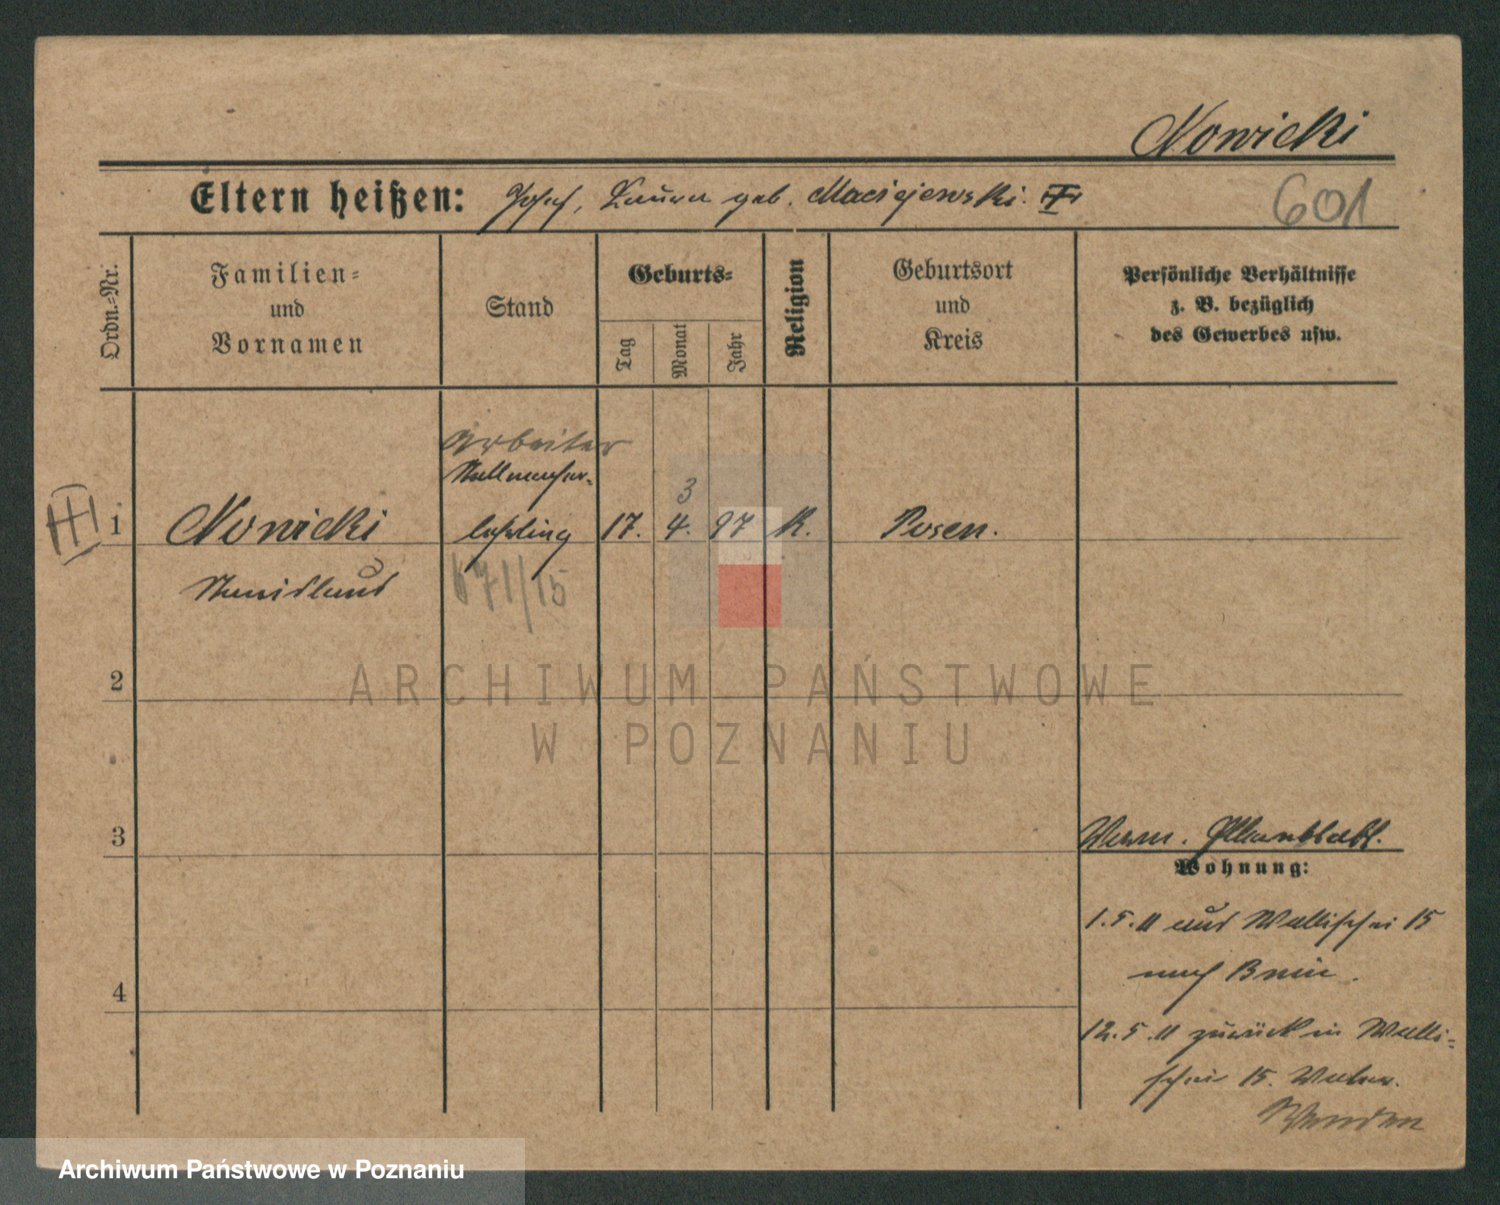 Nowicki
Eltern heißen: Josef, Laura geb. Maciejewski.
601
Ordn.-Nr.
Familien-
und
Vornamen
Stand
Geburts-
Tag
Monat
Jahr
Religion
Geburtsort
und
Kreis
Persönliche Verhältnisse
z. B. bezüglich
des Gewerbes usw.
Arbeiter
3
1 Nowicki lehrling 17. 4. 97 K. Posen.
Stanislaus 671/15
2
3
Wohnung:
1.5.11 aus Wallischei 15
nach Bnin.
12.5.11 zurück in Walli-
schei 15.
4
Wenden
ARCHIWUM PAŃSTWOWE
W POZNANIU
Archiwum Państwowe w Poznaniu